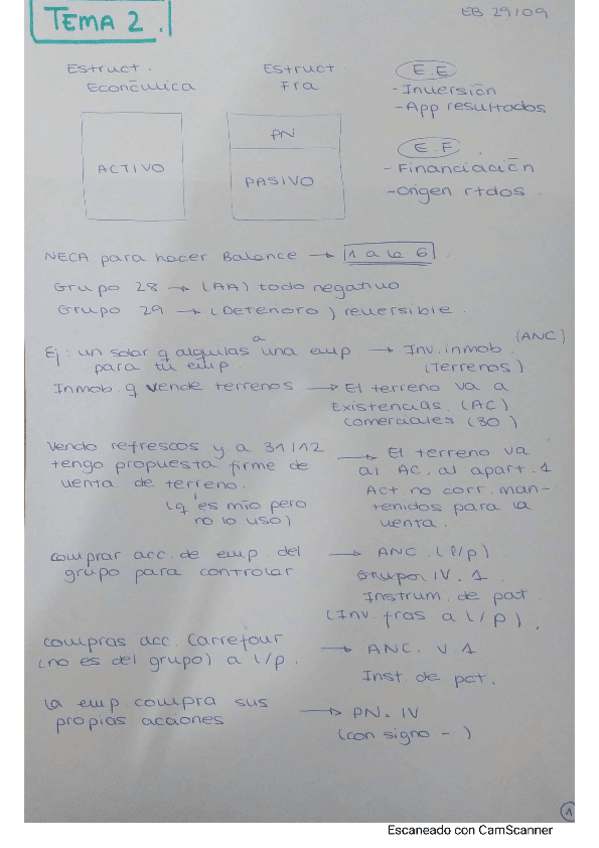 TEMA 2.
EB 29/09
Estruct. Económica
Estruct Fra
ACTIVO
PN
PASIVO
E.E
- Inversión
- App resultados
E.F
- Financiación
- Origen rtdos.
NECA para hacer Balance → 1 a la 6.
Grupo 28 → (AA) todo negativo
Grupo 29 → (Deterioro) reversible.
Ej: un solar q alquilas a una emp → Inv. inmob. (ANC)
para tu emp. (Terrenos)
Inmob. q vende terrenos → El terreno va a
Existencias. (AC)
Comerciales (30)
Vendo refrescos y a 31/12 → El terreno va
tengo propuesta firme de al AC. al apart. 1
venta de terreno. Act. no corr. man-
(q es mío pero tenidos para la
no lo uso) venta.
Comprar acc. de emp. del → ANC. (l/p)
grupo para controlar Grupo IV. 1
Instrum. de pat
(Inv. fras a l/p).
Compras acc. Carrefour → ANC. V. 1
(no es del grupo) a l/p. Inst. de pat.
La emp compra sus → PN. IV
propias acciones (con signo -)
1
Escaneado con CamScanner